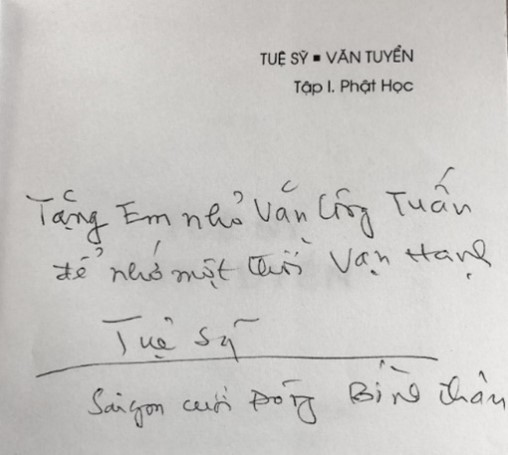 TUỆ SỸ ▪ VĂN TUYỂN
Tập I. Phật Học
Tặng Em nhỏ Văn Công Tuấn
để nhớ một thời Vạn Hạnh
Tuệ Sỹ
Saigon cuối Đông Bính thân